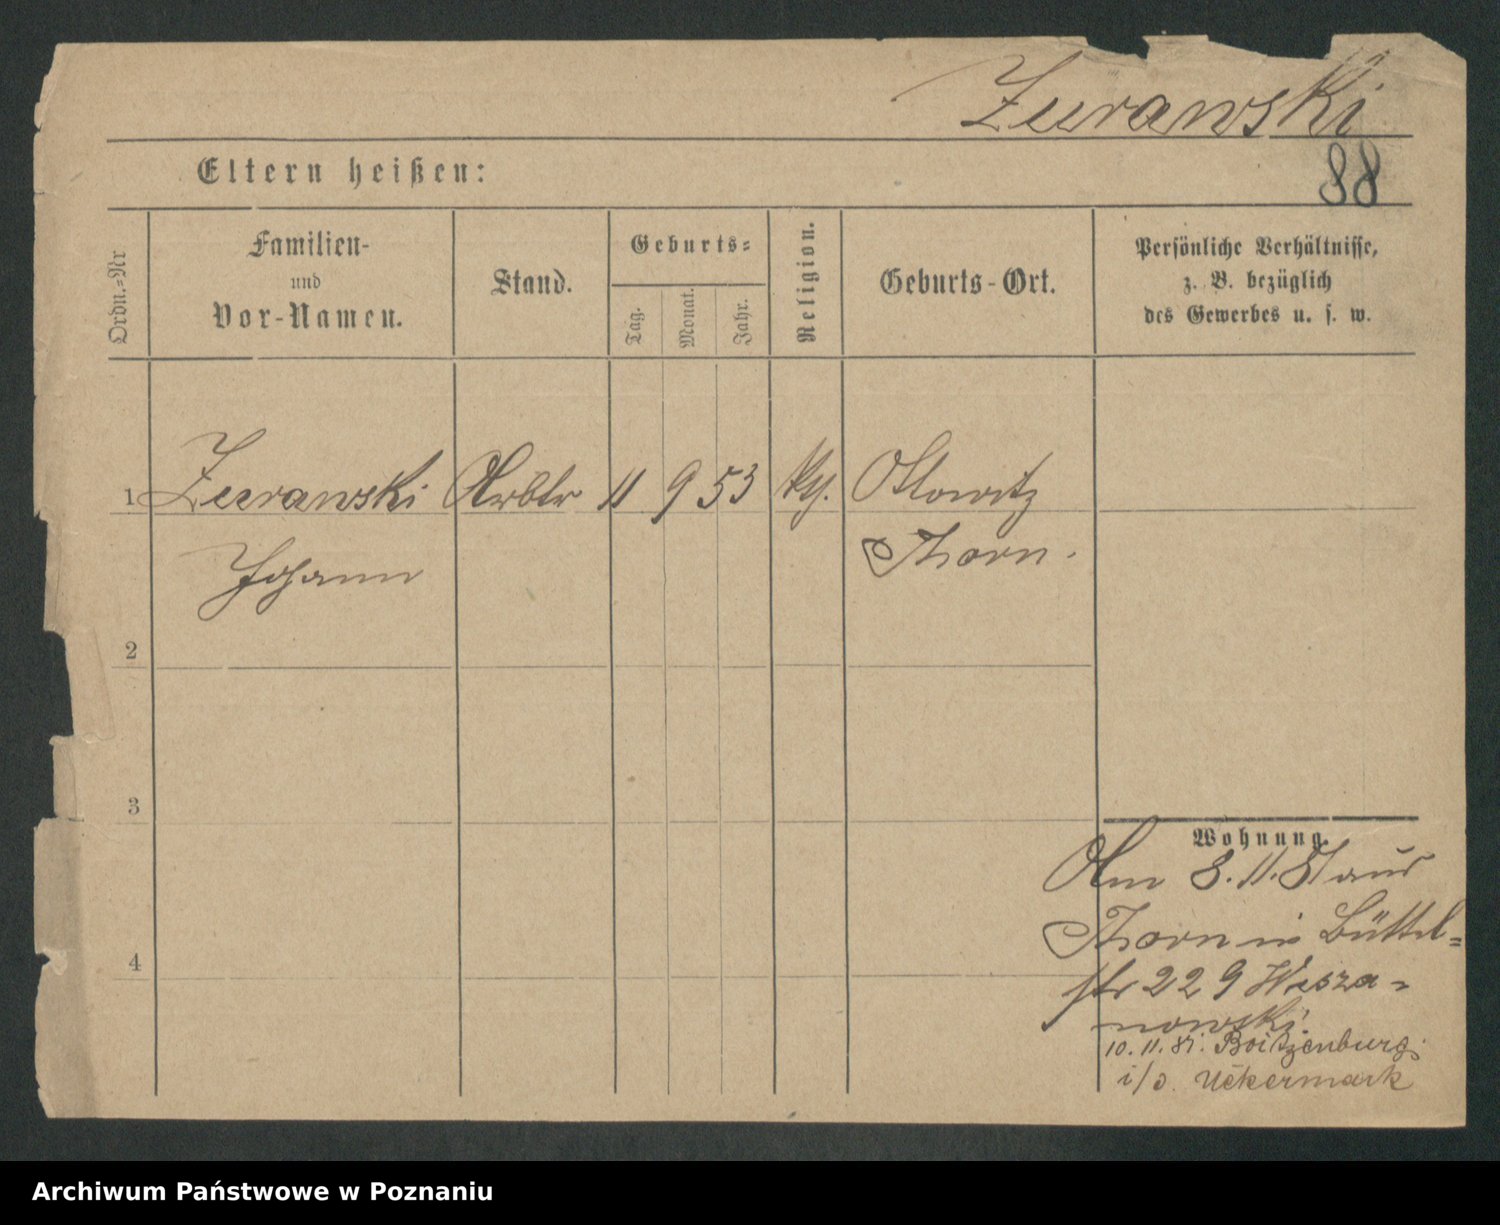 Zurawski
88
Eltern heißen:
Ordn.-Nr
Familien-
und
Vor-Namen.
Stand.
Geburts-
Tag.
Monat.
Jahr.
Religion.
Geburts-Ort.
Persönliche Verhältnisse,
z. B. bezüglich
des Gewerbes u. s. w.
1 Zurawski Arbtr 11 9 53 Ottowitz
Johann Thorn.
2
3
4
Wohnung.
Am 8.11.81 aus
Thorn in Büttel=
str 22 9
nowski.
10.11.81. Boitzenburg
i/d. Uckermark
Archiwum Państwowe w Poznaniu